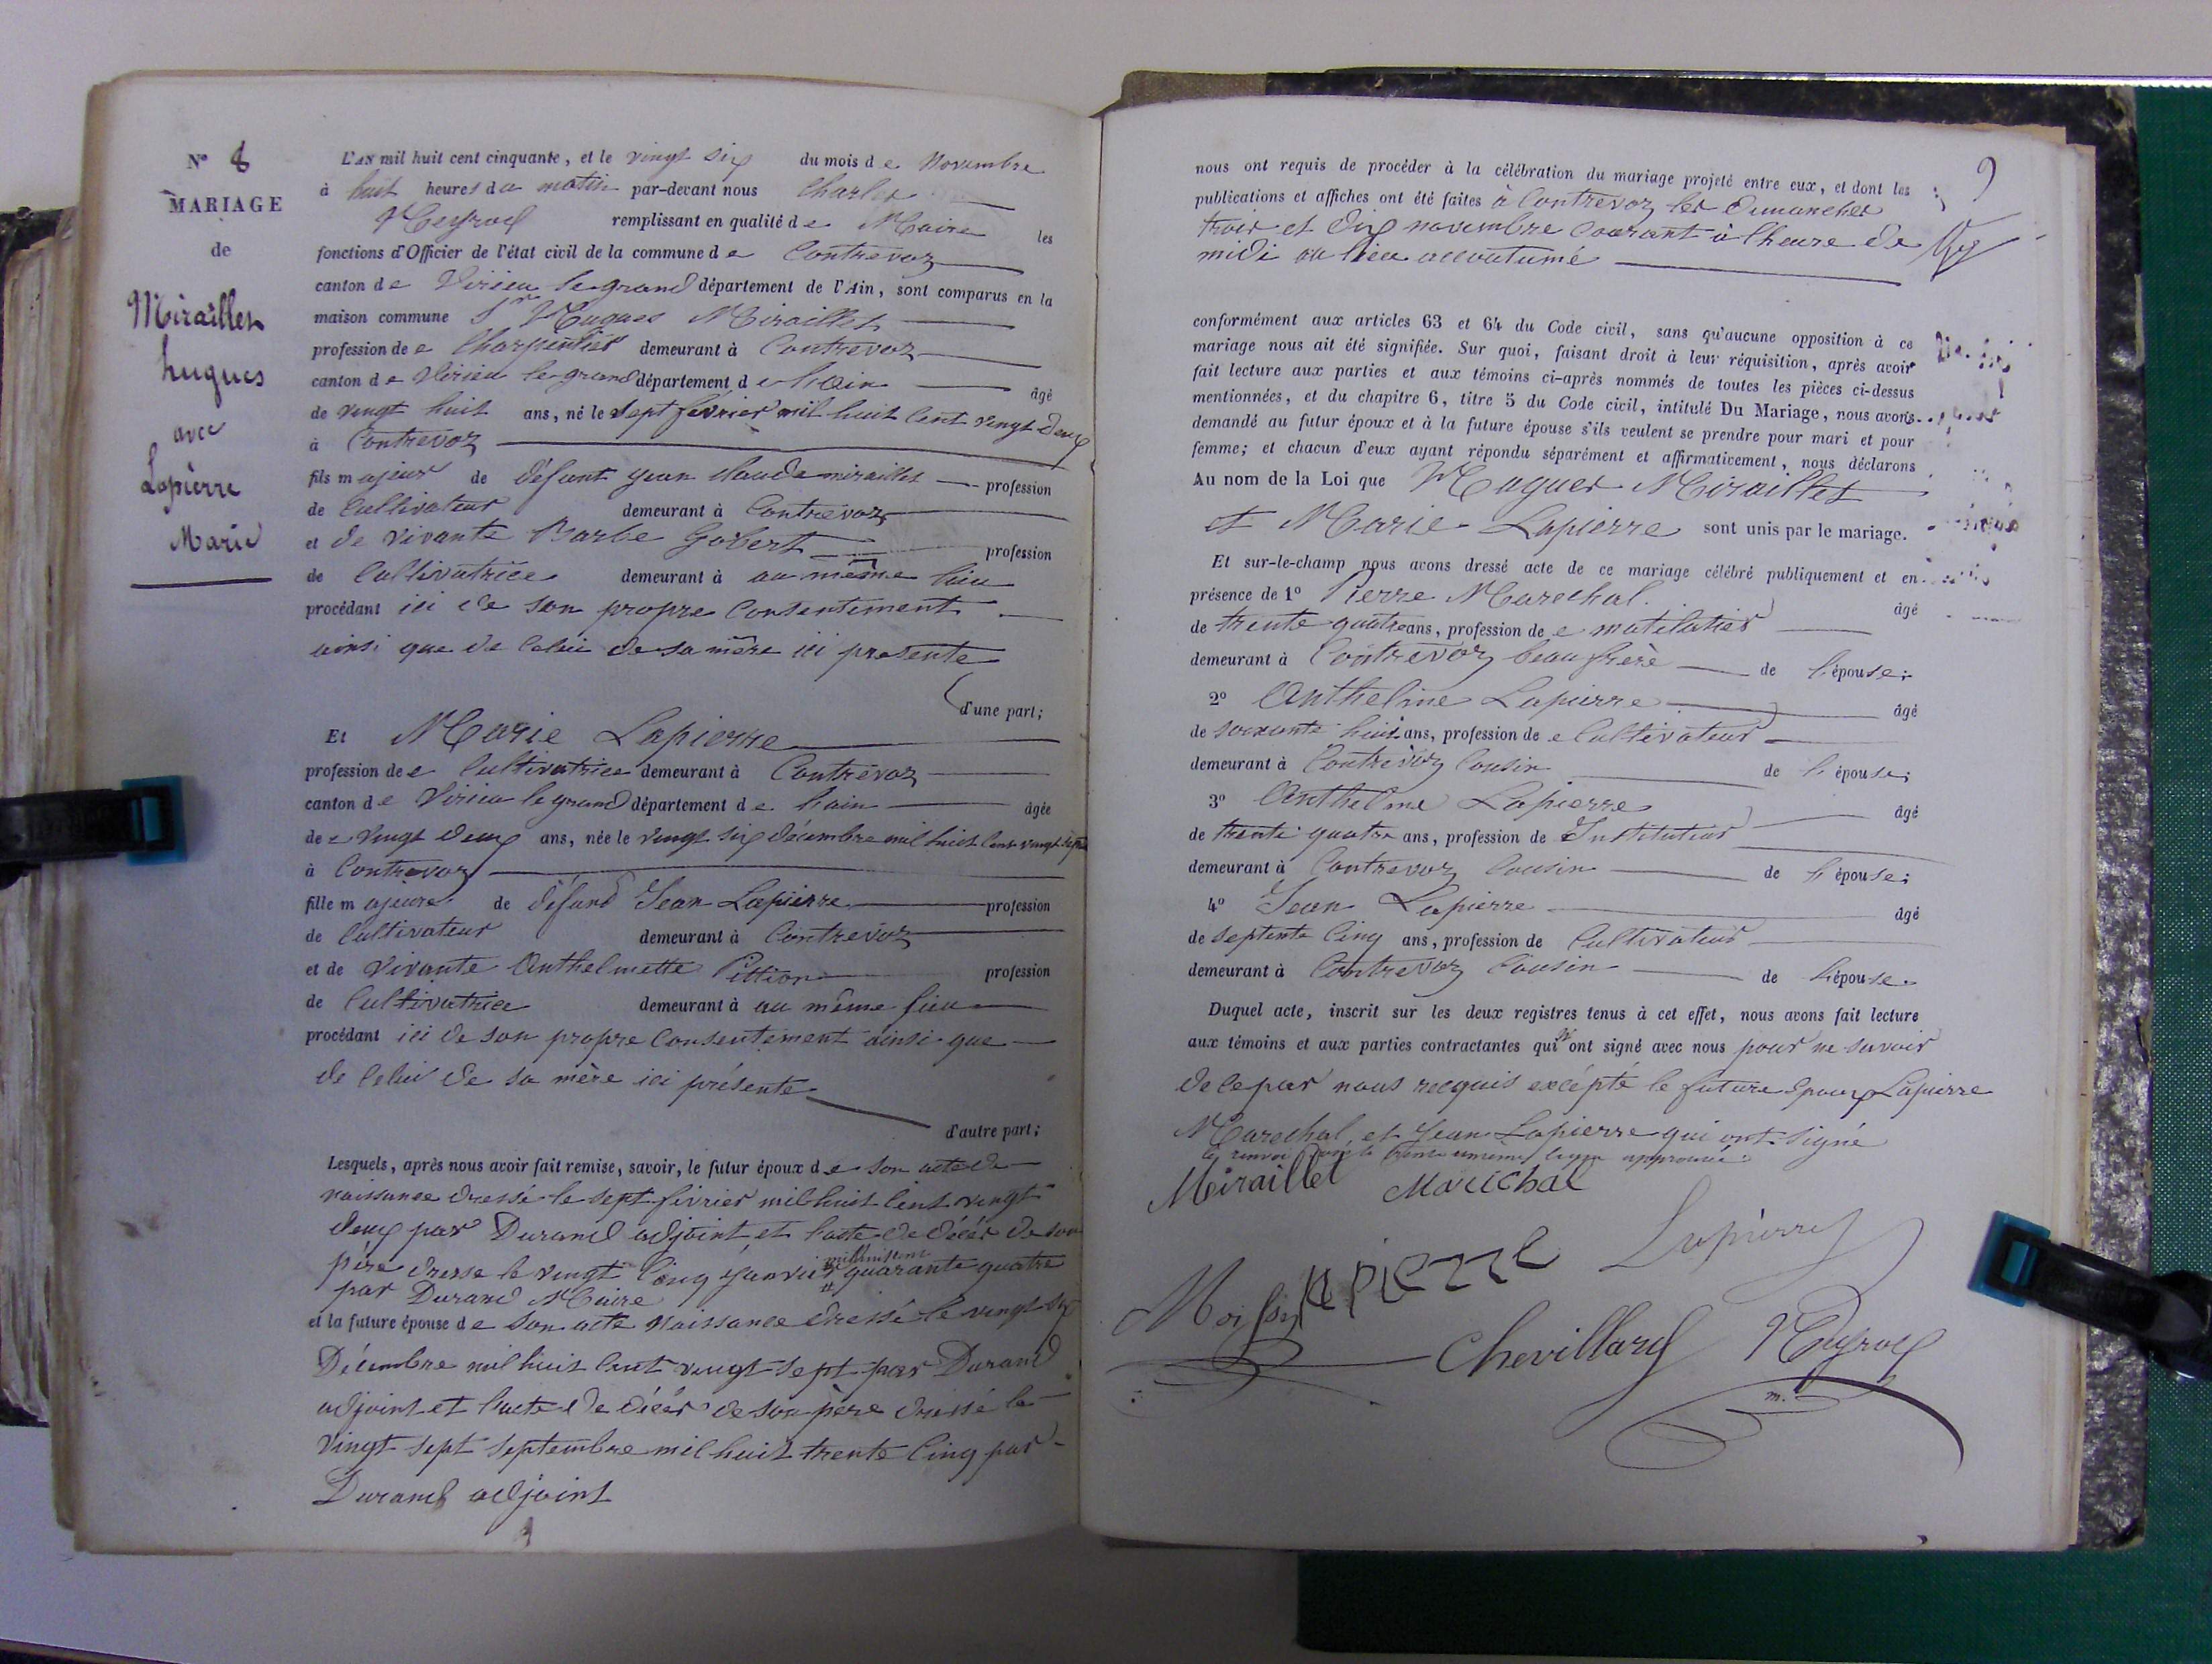 N° 8
MARIAGE
de
Miraillet
hugues
avec
Lapierre
Marie
L'AN mil huit cent cinquante, et le vingt six du mois de Novembre
à huit heures du matin par-devant nous Charles
remplissant en qualité de Maire les
fonctions d'Officier de l'état civil de la commune de Contrevoz
canton de Virieu le grand département de l'Ain, sont comparus en la
maison commune Sr Hugues Miraillet
profession de e Charpentier demeurant à Contrevoz
canton de Virieu le grand département de l'ain âgé
de vingt huit ans, né le sept février mil huit cent vingt deux
à Contrevoz
fils majeur de défunt jean claude miraillet profession
de Cultivateur demeurant à Contrevoz
et de vivante Barbe Gobert profession
de Cultivatrice demeurant à au même lieu
procédant ici de son propre Consentement
ainsi que de Celui de sa mère ici présente
d'une part;
Et Marie Lapierre
profession de e Cultivatrice demeurant à Contrevoz
canton de Virieu le grand département de l'ain âgée
de vingt deux ans, née le vingt six décembre mil huit Cent vingt sept
à Contrevoz
fille majeure de défund Jean Lapierre profession
de Cultivateur demeurant à Contrevoz
et de vivante Anthelmette Pittion profession
de Cultivatrice demeurant à au même lieu
procédant ici de son propre Consentement ainsi que
de Celui de sa mère ici présente
d'autre part;
Lesquels, après nous avoir fait remise, savoir, le futur époux de son acte de
naissance dressé le sept février mil huit Cent vingt
deux par Durand adjoint et l'acte de décès de son
père dresse le vingt Cinq janvier mil huit cent quarante quatre
par Durand Maire
et la future épouse de son acte naissance dressé le vingt six
Décembre mil huit Cent vingt sept par Durand
adjoint et l'acte de décès de son père dressé le
vingt sept septembre mil huit trente Cinq par
Durand adjoint
nous ont requis de procéder à la célébration du mariage projeté entre eux, et dont les
publications et affiches ont été faites à Contrevoz les dimanches
trois et dix novembre Courant à l'heure de
midi au lieu accoutumé
conformément aux articles 63 et 64 du Code civil, sans qu'aucune opposition à ce
mariage nous ait été signifiée. Sur quoi, faisant droit à leur réquisition, après avoir
fait lecture aux parties et aux témoins ci-après nommés de toutes les pièces ci-dessus
mentionnées, et du chapitre 6, titre 5 du Code civil, intitulé Du Mariage, nous avons
demandé au futur époux et à la future épouse s'ils veulent se prendre pour mari et pour
femme; et chacun d'eux ayant répondu séparément et affirmativement, nous déclarons
Au nom de la Loi que Hugues Miraillet
et Marie Lapierre sont unis par le mariage.
Et sur-le-champ nous avons dressé acte de ce mariage célébré publiquement et en
présence de 1° Pierre Marechal âgé
de trente quatre ans, profession de e matelatier
demeurant à Contrevoz beau frère de l'épouse;
2° Anthelme Lapierre âgé
de soixante huit ans, profession de e Cultivateur
demeurant à Contrevoz Cousin de l'épouse;
3° Anthelme Lapierre âgé
de trente quatre ans, profession de Instituteur
demeurant à Contrevoz Cousin de l'épouse;
4° Jean Lapierre âgé
de septente Cinq ans, profession de Cultivateur
demeurant à Contrevoz Cousin de l'épouse.
Duquel acte, inscrit sur les deux registres tenus à cet effet, nous avons fait lecture
aux témoins et aux parties contractantes qui n'ont signé avec nous pour ne savoir
de ce par nous recquis excépté le future Epoux Lapierre
Marechal, et Jean Lapierre qui ont signé
Miraillet Marichal
Lapierre
pierre
Chevillard
m.